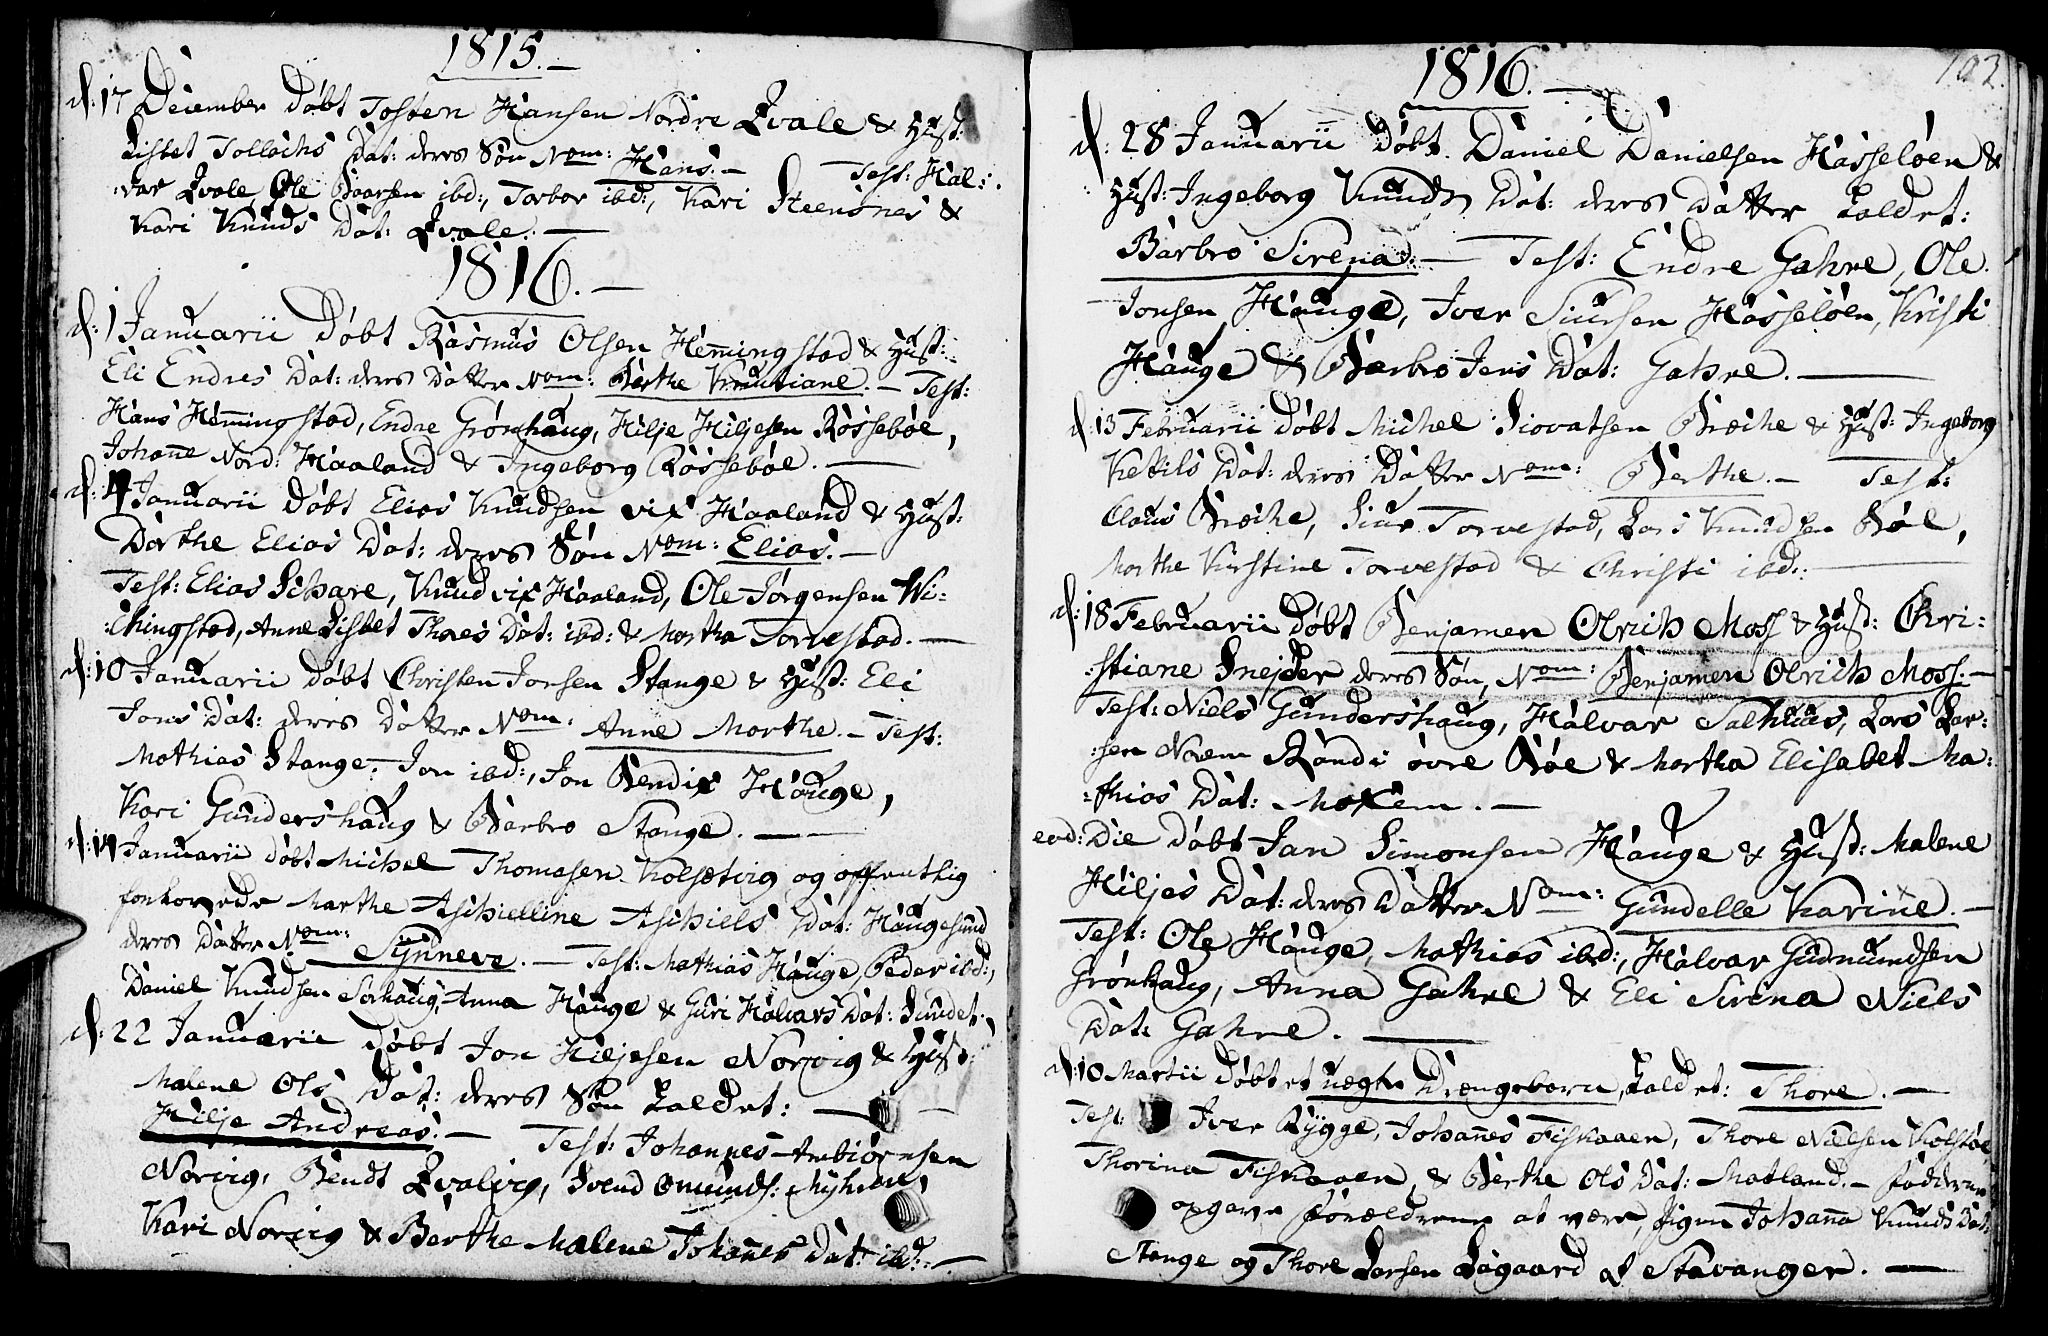 1815.-
d: 17 December Døbt Tosten Hansen Nordre Qvale & Hust:
Lisbet Tollachs Dat: deres Søn Nom: Hans.- Test: Hal:
:var Qvale, Ole Baarsen ibd:, Torbor ibd:, Kari Steensnes &
Kari Knuds Dat: Qvale. —
1816.-
d: 1 Januarii Døbt Rasmus Olsen Hemingstad & Hust:
Eli Endres Dat: deres Datter Nom: Berthe Knutiane.- Test:
Hans Hemingstad, Endre Grønhaug, Hilje Hiljesen Røssebøe,
Johanne Nord: Haaland & Ingeborg Røssebøe. —
d: 4 Januarii Døbt Elias Knudsen vix Haaland & Hust:
Dorthe Elias Dat: deres Søn Nom: Elias.-
Test: Elias Schare, Knud vix Haaland, Ole Jørgensen Wi:
:chingstad, Anne Lisbet Thores Dat: ibd: & Martha Torvestad. —
d: 10 Januarii Døbt Christen Jonsen Stange & Hust: Eli
Jons Dat: deres Datter Nom: Anne Marthe.- Test:
Mathias Stange, Jon ibd:, Jon Bendix Hauge,
Kari Gundershaug & Barbro Stange. —
d: 14 Januarii Døbt Michel Thomasen Kolsætvig og offentlig
forlovede Marthe Aschielline Aschiels Dat: Haugesund
deres Datter Nom: Synneve. — Test: Mathias Hauge, Peder ibd:,
Daniel Knudsen Sørhaug, Anna Hauge & Guri Halvars Dat: Sundet.
d: 22 Januarii Døbt Jon Hiljesen Norvig & Hust:
Malene Ols Dat: deres Søn kaldet: —
Hilje Andreas.- Test: Johannes Ambiørnsen
Norvig, Bendt Qvalvig, Svend Omunds: Myhren,
Kari Norvig & Berthe Malene Johannes Dat: ibd:. —
102.
1816.-
d: 28 Januarii Døbt Daniel Danielsen Hasseløen &
Hust: Ingeborg Knuds Dat: deres Datter kaldet:
Barbro Sirena.- Test: Endre Gahre, Ole
Jonsen Hauge, Iver Siursen Hasseløen, Kristi
Hauge & Barbro Jens Dat: Gahre. —
d: 13 Februarii Døbt Michel Siovatsen Bræche & Hust: Ingeborg
Kettils Dat: deres Datter Nom: Berthe.- Test:
Claus Bræche, Siur Torvestad, Lars Knudsen Bøe,
Marthe Kirstine Torvestad & Christi ibd:. —
d: 18 Februarii Døbt Benjamen Olrich Moss & Hust: Chri:
:stiane Snejder deres Søn, Nom: Benjamen Olrich Moss.-
Test: Niels Gundershaug, Halvar Salhuus, Lars Lar:
:sen Norem Randi øvre Bøe & Martha Elisabet Ma:
:thias Dat: Moxem. —
eod: Die Døbt Jan Simonsen Hauge & Hust: Malene
Hiljes Dat: deres Datter Nom: Gundelle Karine.-
Test: Ole Hauge, Mathias ibd:, Halvar Gudmundsen
Grønhaug, Anna Gahre & Eli Sirena Niels
Dat: Gahre. —
d: 10 Martii Døbt et uægte Drengebarn, kaldet: Thore. —
Test: Iver Rygge, Johannes Fiskaaen, Thore Nielsen Kolstøe,
Thorina Fiskaaen, & Berthe Ols Dat: Matland.- Fadderne
opgave Forældrene at være, Pigen Johanna Knuds Dat:
Stange og Thore Larsen Lagaard af Stavanger. —